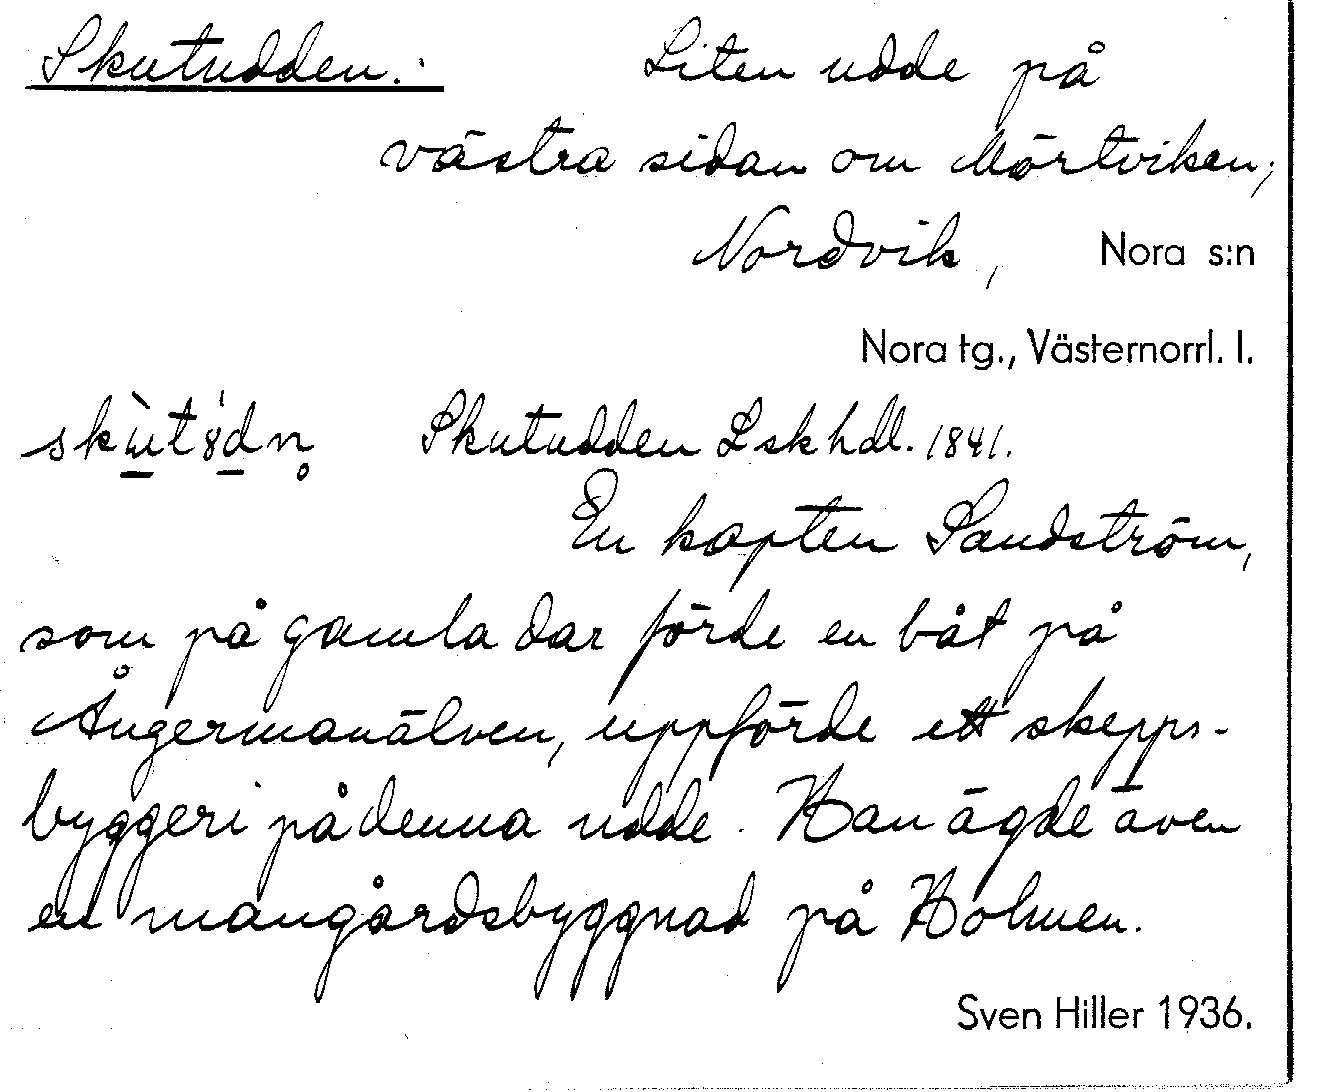 Skutudden: Liten udde på
västra sidan om Mörtviken,
Nordvik, Nora s:n
Nora tg., Västernorrl. l.
Skutudden Lskhdl. 1841.
En kapten Sandström,
som på gamla dar förde en båt på
Ångermanälven, uppförde ett skepps-
byggeri på denna udde. Han ägde även
en mangårdsbyggnad på Holmen.
Sven Hiller 1936.